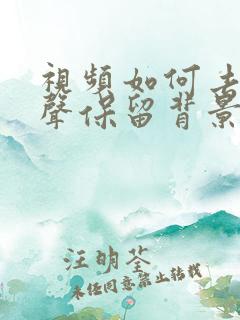 視頻如何去
聲保留背景
汪明荃
未任同意禁止转载